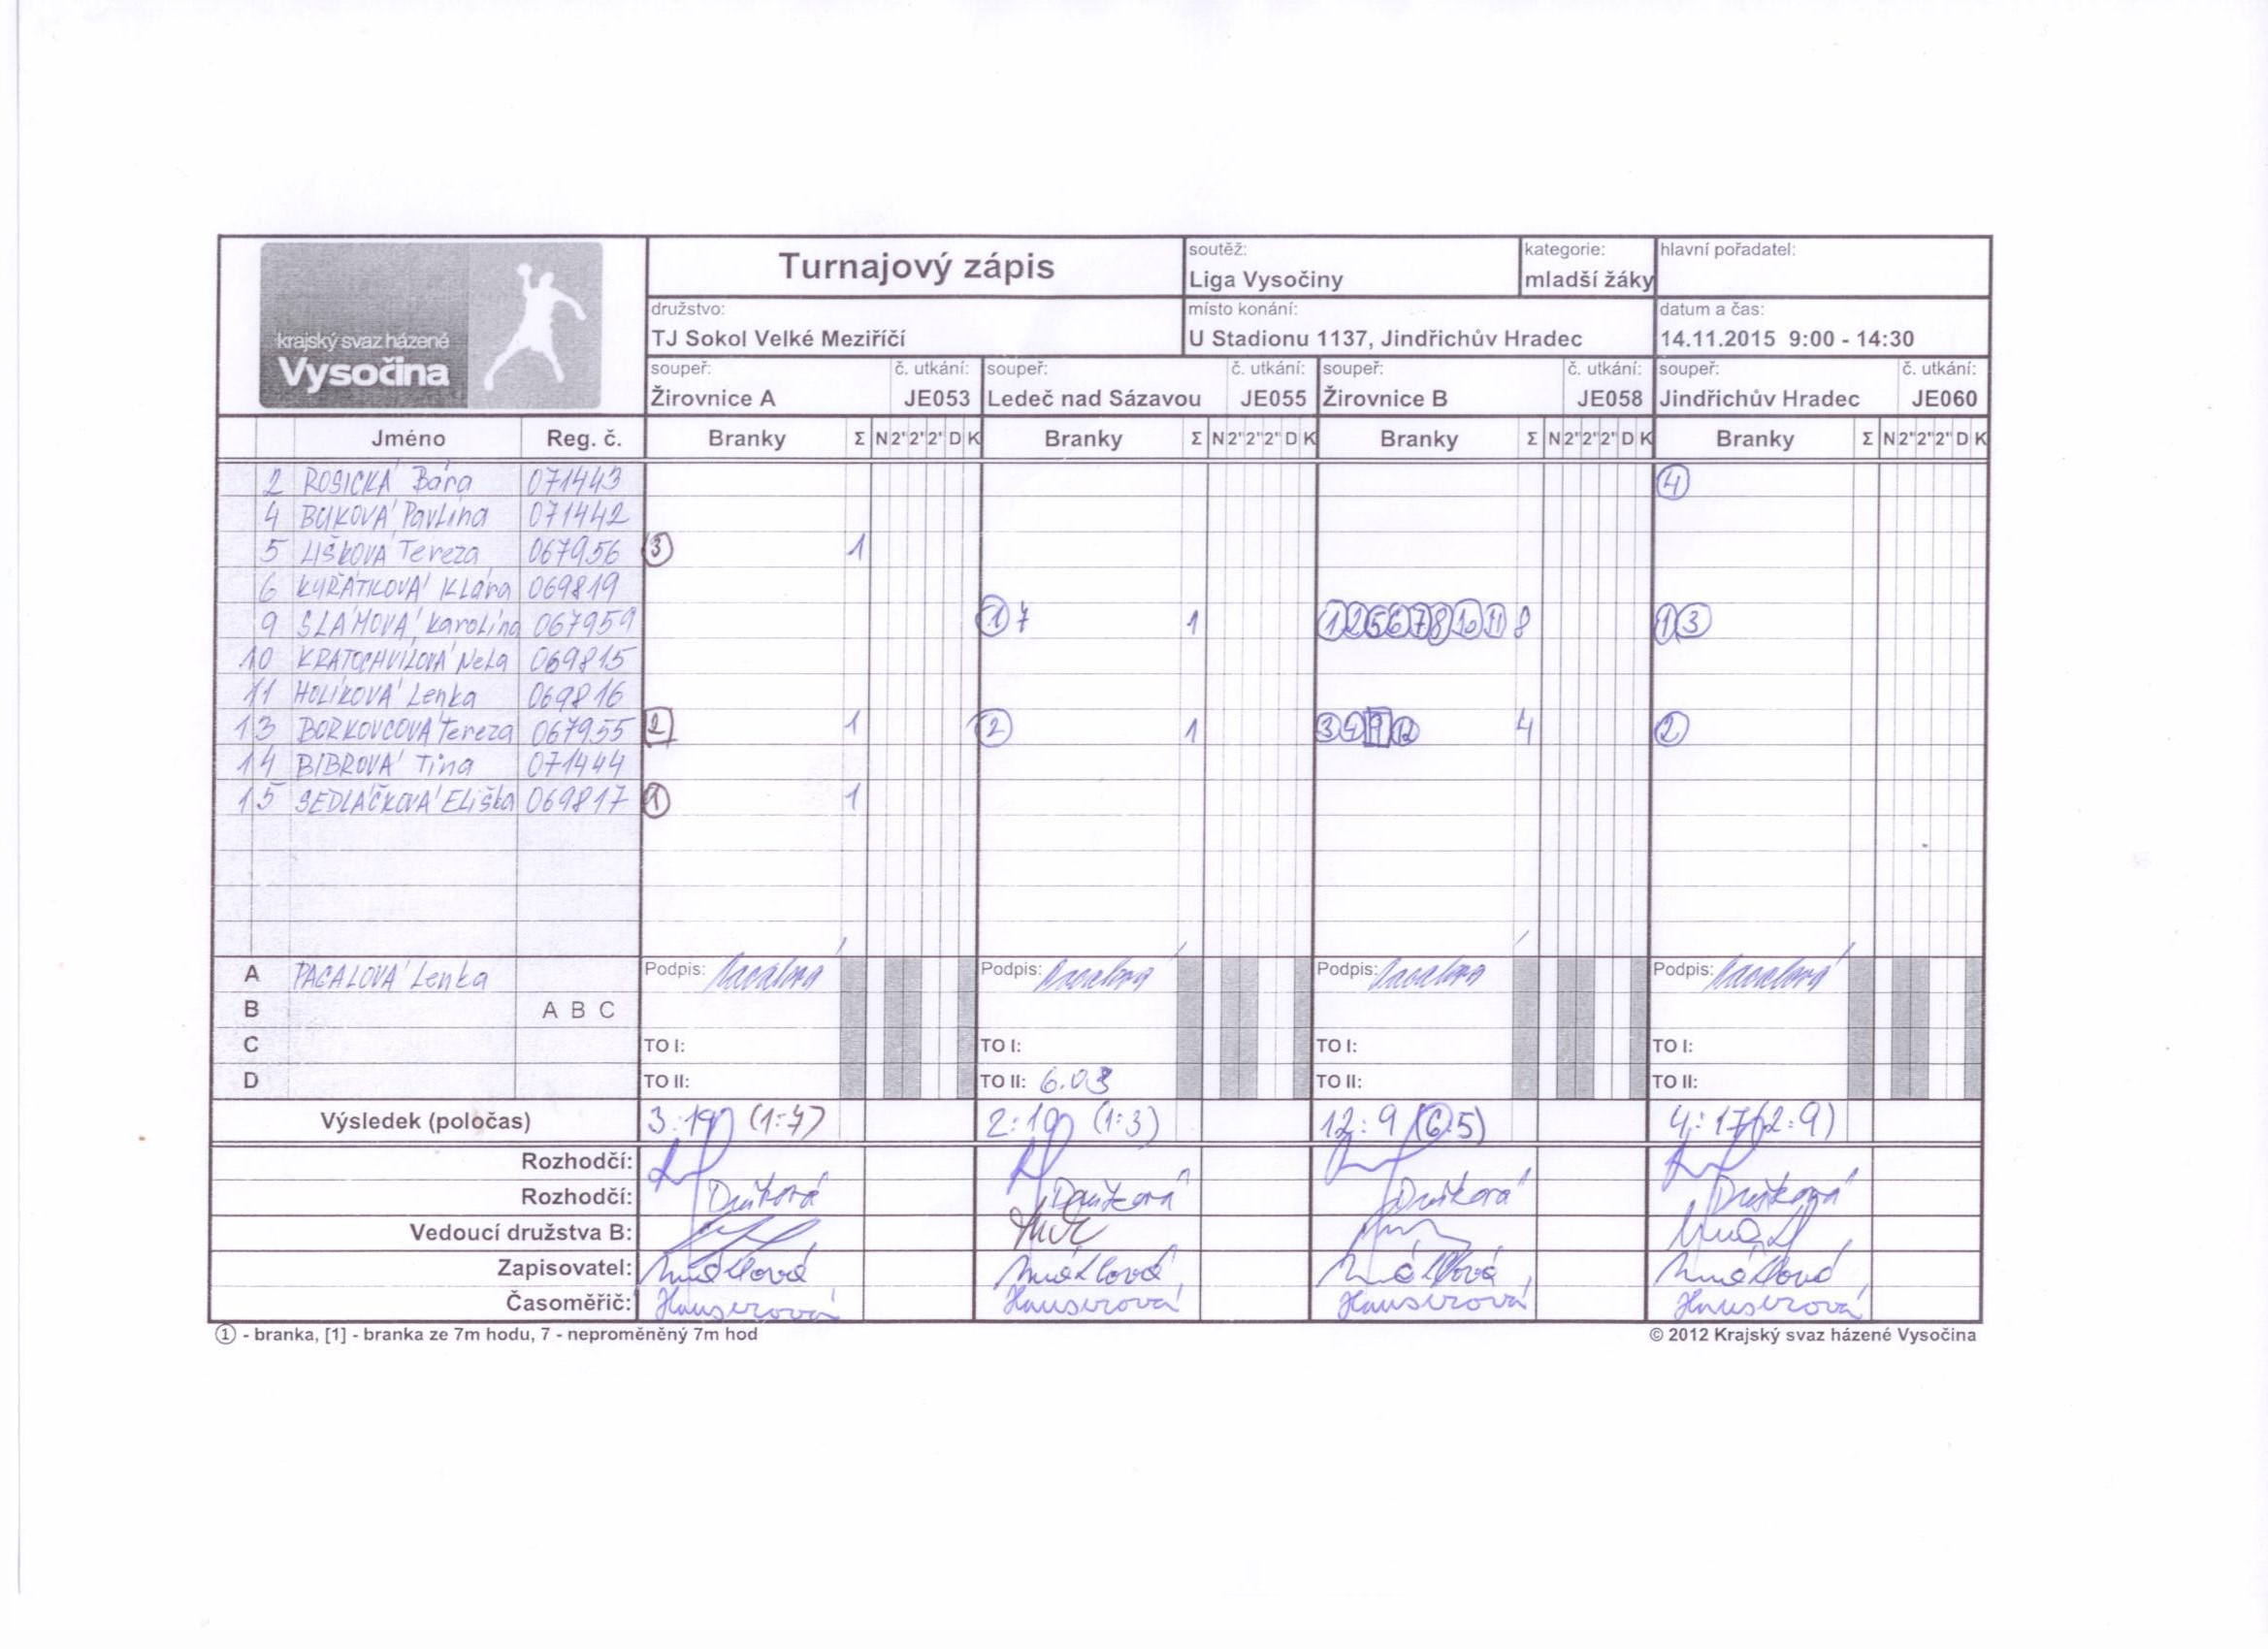 krajský svaz házené
Vysočina
Turnajový zápis
soutěž:
Liga Vysočiny
kategorie:
mladší žáky
hlavní pořadatel:
družstvo:
TJ Sokol Velké Meziříčí
místo konání:
U Stadionu 1137, Jindřichův Hradec
datum a čas:
14.11.2015 9:00 - 14:30
soupeř: č. utkání: soupeř: č. utkání: soupeř: č. utkání: soupeř: č. utkání:
Žirovnice A JE053 Ledeč nad Sázavou JE055 Žirovnice B JE058 Jindřichův Hradec JE060
Jméno Reg. č. Branky Σ N 2" 2' 2' D K Branky Σ N 2" 2' 2' D K Branky Σ N 2" 2' 2' D K Branky Σ N 2" 2' 2' D K
2 ROSICKÁ Bára 071443 4
4 Pavlína 071442
5 LIŠKOVÁ Tereza 067956 3 1
6 KUŘÁTKOVÁ Klára 069819
9 SLÁMOVÁ Karolína 067959 1 7 1 1 2 5 6 7 8 10 11 8 1 3
10 KRATOCHVÍLOVÁ Nela 069815
11 HOLÍKOVÁ Lenka 069816
13 BORKOVCOVÁ Tereza 067955 2 1 2 1 3 4 9 12 4 2
14 BIBROVÁ Tina 071444
15 SEDLÁČKOVÁ Eliška 069817 1 1
A PACALOVÁ Lenka Podpis: Pacalová Podpis: Pacalová Podpis: Pacalová Podpis: Pacalová
B A B C
C TO I: TO I: TO I: TO I:
D TO II: TO II: 6.03 TO II: TO II:
Výsledek (poločas) 3:19 (1:7) 2:19 (1:3) 12:9 (6:5) 4:17 (2:9)
Rozhodčí:
Rozhodčí:
Vedoucí družstva B:
Zapisovatel:
Časoměřič: Hauserová Hauserová Hauserová Hauserová
① - branka, [1] - branka ze 7m hodu, 7 - neproměněný 7m hod
© 2012 Krajský svaz házené Vysočina